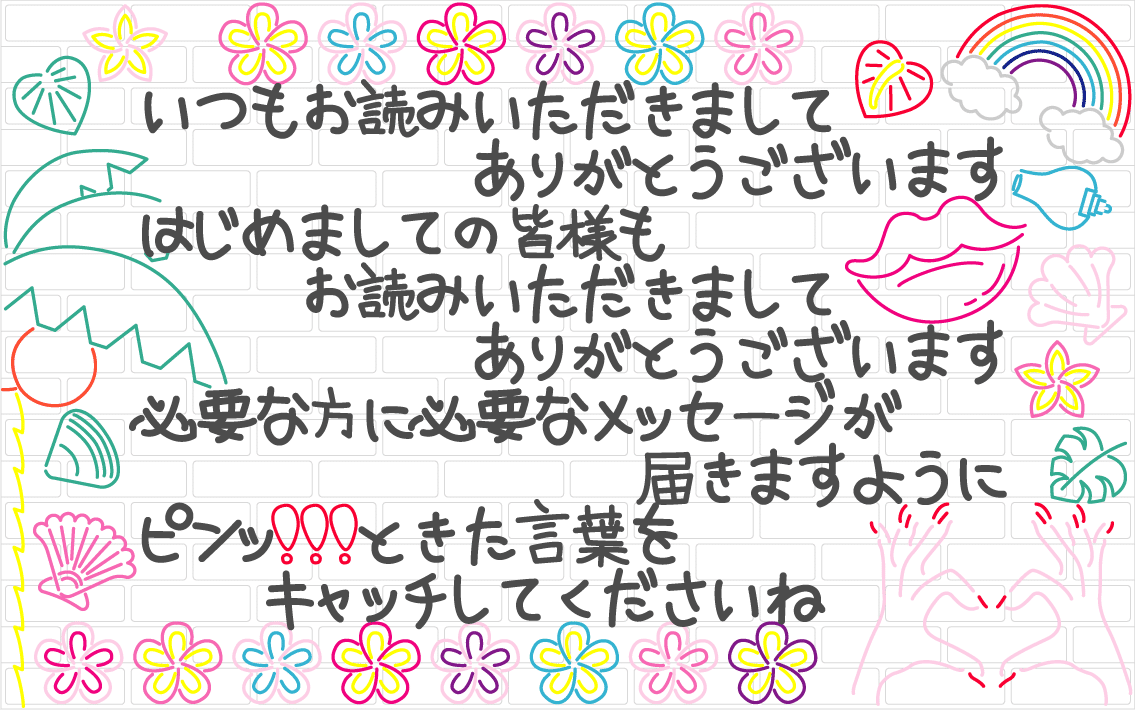 いつもお読みいただきまして
ありがとうございます
はじめましての皆様も
お読みいただきまして
ありがとうございます
必要な方に必要なメッセージが
届きますように
ピンッ!!!ときた言葉を
キャッチしてくださいね